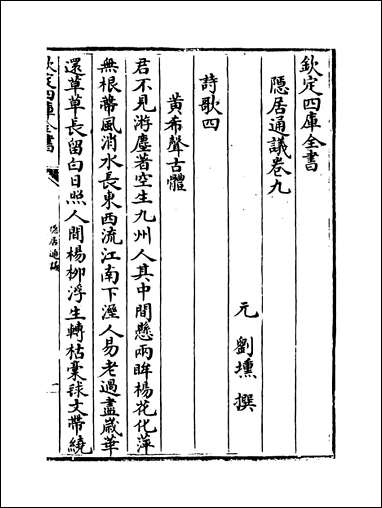 欽定四庫全書
隱居通議卷九
元 劉壎 撰
詩歌四
黃希聲古體
君不見游塵着空生九州人其中間懸兩眸楊花化萍
無根蔕風消水長東西流江南下溼人易老過盡嵗華
還草草長留白日照人間楊柳浮生轉枯槀銶文帶繞
欽定四庫全書
隱居通議
一